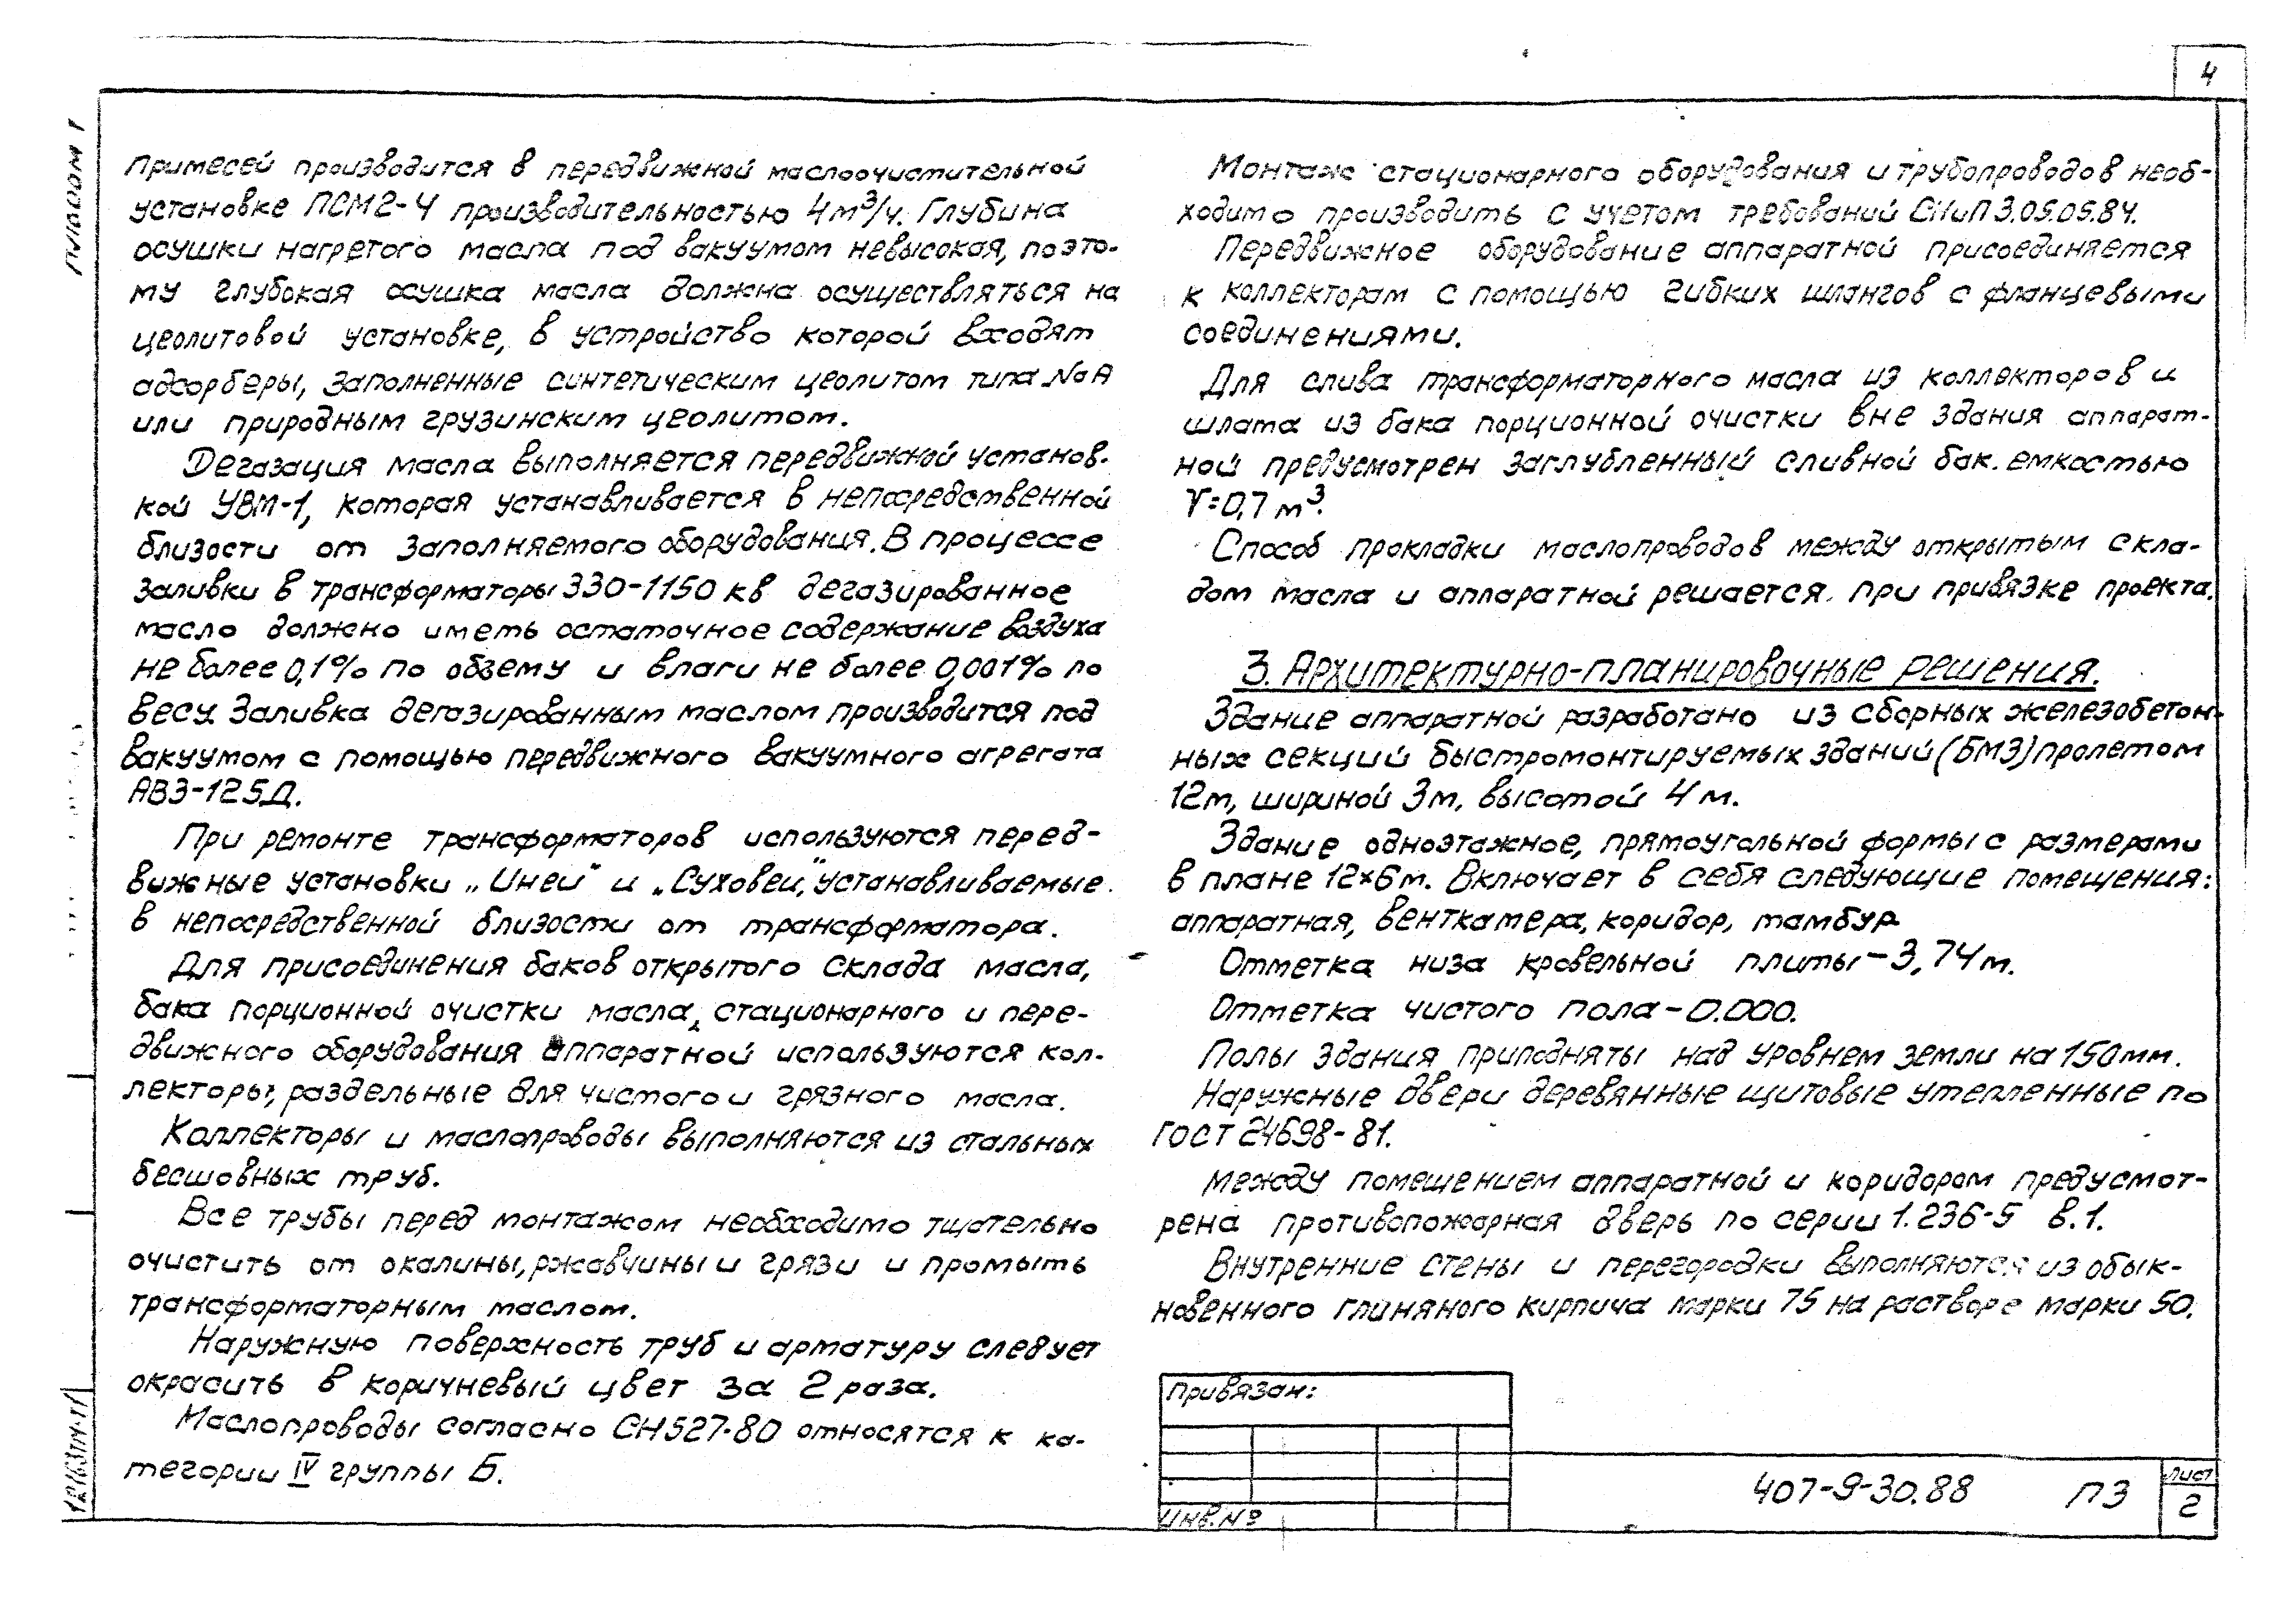 4
Альбом I
примесей производится в передвижной маслоочистительной
установке ПСМ2-4 производительностью 4м³/ч. Глубина
осушки нагретого масла под вакуумом невысокая, поэто-
му глубокая осушка масла должна осуществляться на
цеолитовой установке, в устройство которой входят
адсорберы, заполненные синтетическим цеолитом типа NaA
или природным грузинским цеолитом.
Дегазация масла выполняется передвижной установ-
кой УВМ-1, которая устанавливается в непосредственной
близости от заполняемого оборудования. В процессе
заливки в трансформаторы 330-1150 кв дегазированное
масло должно иметь остаточное содержание воздуха
не более 0,1% по объему и влаги не более 0,001% по
весу. Заливка дегазированным маслом производится под
вакуумом с помощью передвижного вакуумного агрегата
АВЗ-125Д.
При ремонте трансформаторов используются перед-
вижные установки „Иней" и „Суховей," устанавливаемые
в непосредственной близости от трансформатора.
Для присоединения баков открытого склада масла,
бака порционной очистки масла, стационарного и пере-
движного оборудования аппаратной используются кол-
лекторы, раздельные для чистого и грязного масла.
Коллекторы и маслопроводы выполняются из стальных
бесшовных труб.
Все трубы перед монтажом необходимо тщательно
очистить от окалины, ржавчины и грязи и промыть
трансформаторным маслом.
Наружную поверхность труб и арматуру следует
окрасить в коричневый цвет за 2 раза.
Маслопроводы согласно СН527-80 относятся к ка-
тегории IV группы Б.
Монтаж стационарного оборудования и трубопроводов необ-
ходимо производить с учетом требований СНиП 3.05.05.84.
Передвижное оборудование аппаратной присоединяется
к коллекторам с помощью гибких шлангов с фланцевыми
соединениями.
Для слива трансформаторного масла из коллекторов и
шлата из бака порционной очистки вне здания аппарат-
ной предусмотрен заглубленный сливной бак. емкостью
V=0,7 м³.
Способ прокладки маслопроводов между открытым скла-
дом масла и аппаратной решается при привязке проекта.
3. Архитектурно-планировочные решения.
Здание аппаратной разработано из сборных железобетон-
ных секций быстромонтируемых зданий (БМЗ) пролетом
12м, шириной 3м, высотой 4 м.
Здание одноэтажное, прямоугольной формы с размерами
в плане 12×6м. Включает в себя следующие помещения:
аппаратная, венткамера, коридор, тамбур
Отметка низа кровельной плиты - 3,74м.
Отметка чистого пола - 0.000.
Полы здания приподняты над уровнем земли на 150мм.
Наружные двери деревянные щитовые утепленные по
ГОСТ 24698-81.
Между помещением аппаратной и коридором предусмот-
рена противопожарная дверь по серии 1.236-5 в.1.
Внутренние стены и перегородки выполняются из обык-
новенного глиняного кирпича марки 75 на растворе марки 50.
Привязан:
Инв.№
407-9-30.88 ПЗ
Лист
2
12163тм-т1